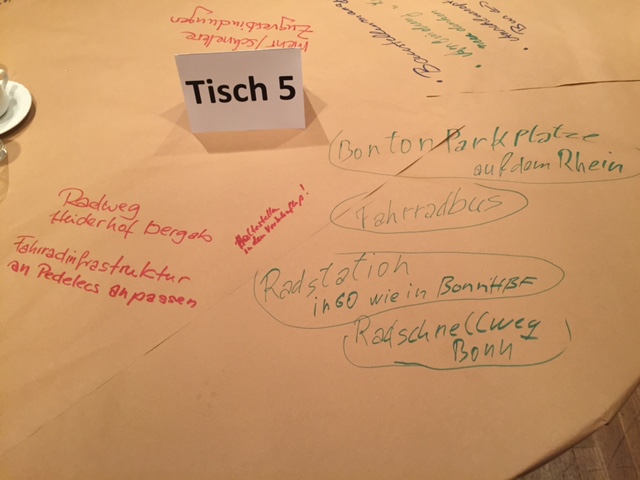 mehr/schnellere
Zugverbindungen
Tisch 5
Bonton Parkplätze
auf dem Rhein
Fahrradbus
Radweg
Heiderhof bergab
Fahrradinfrastruktur
an Pedelecs anpassen
Radstation
in GO wie in Bonn HBF
Radschnellweg
Bonn